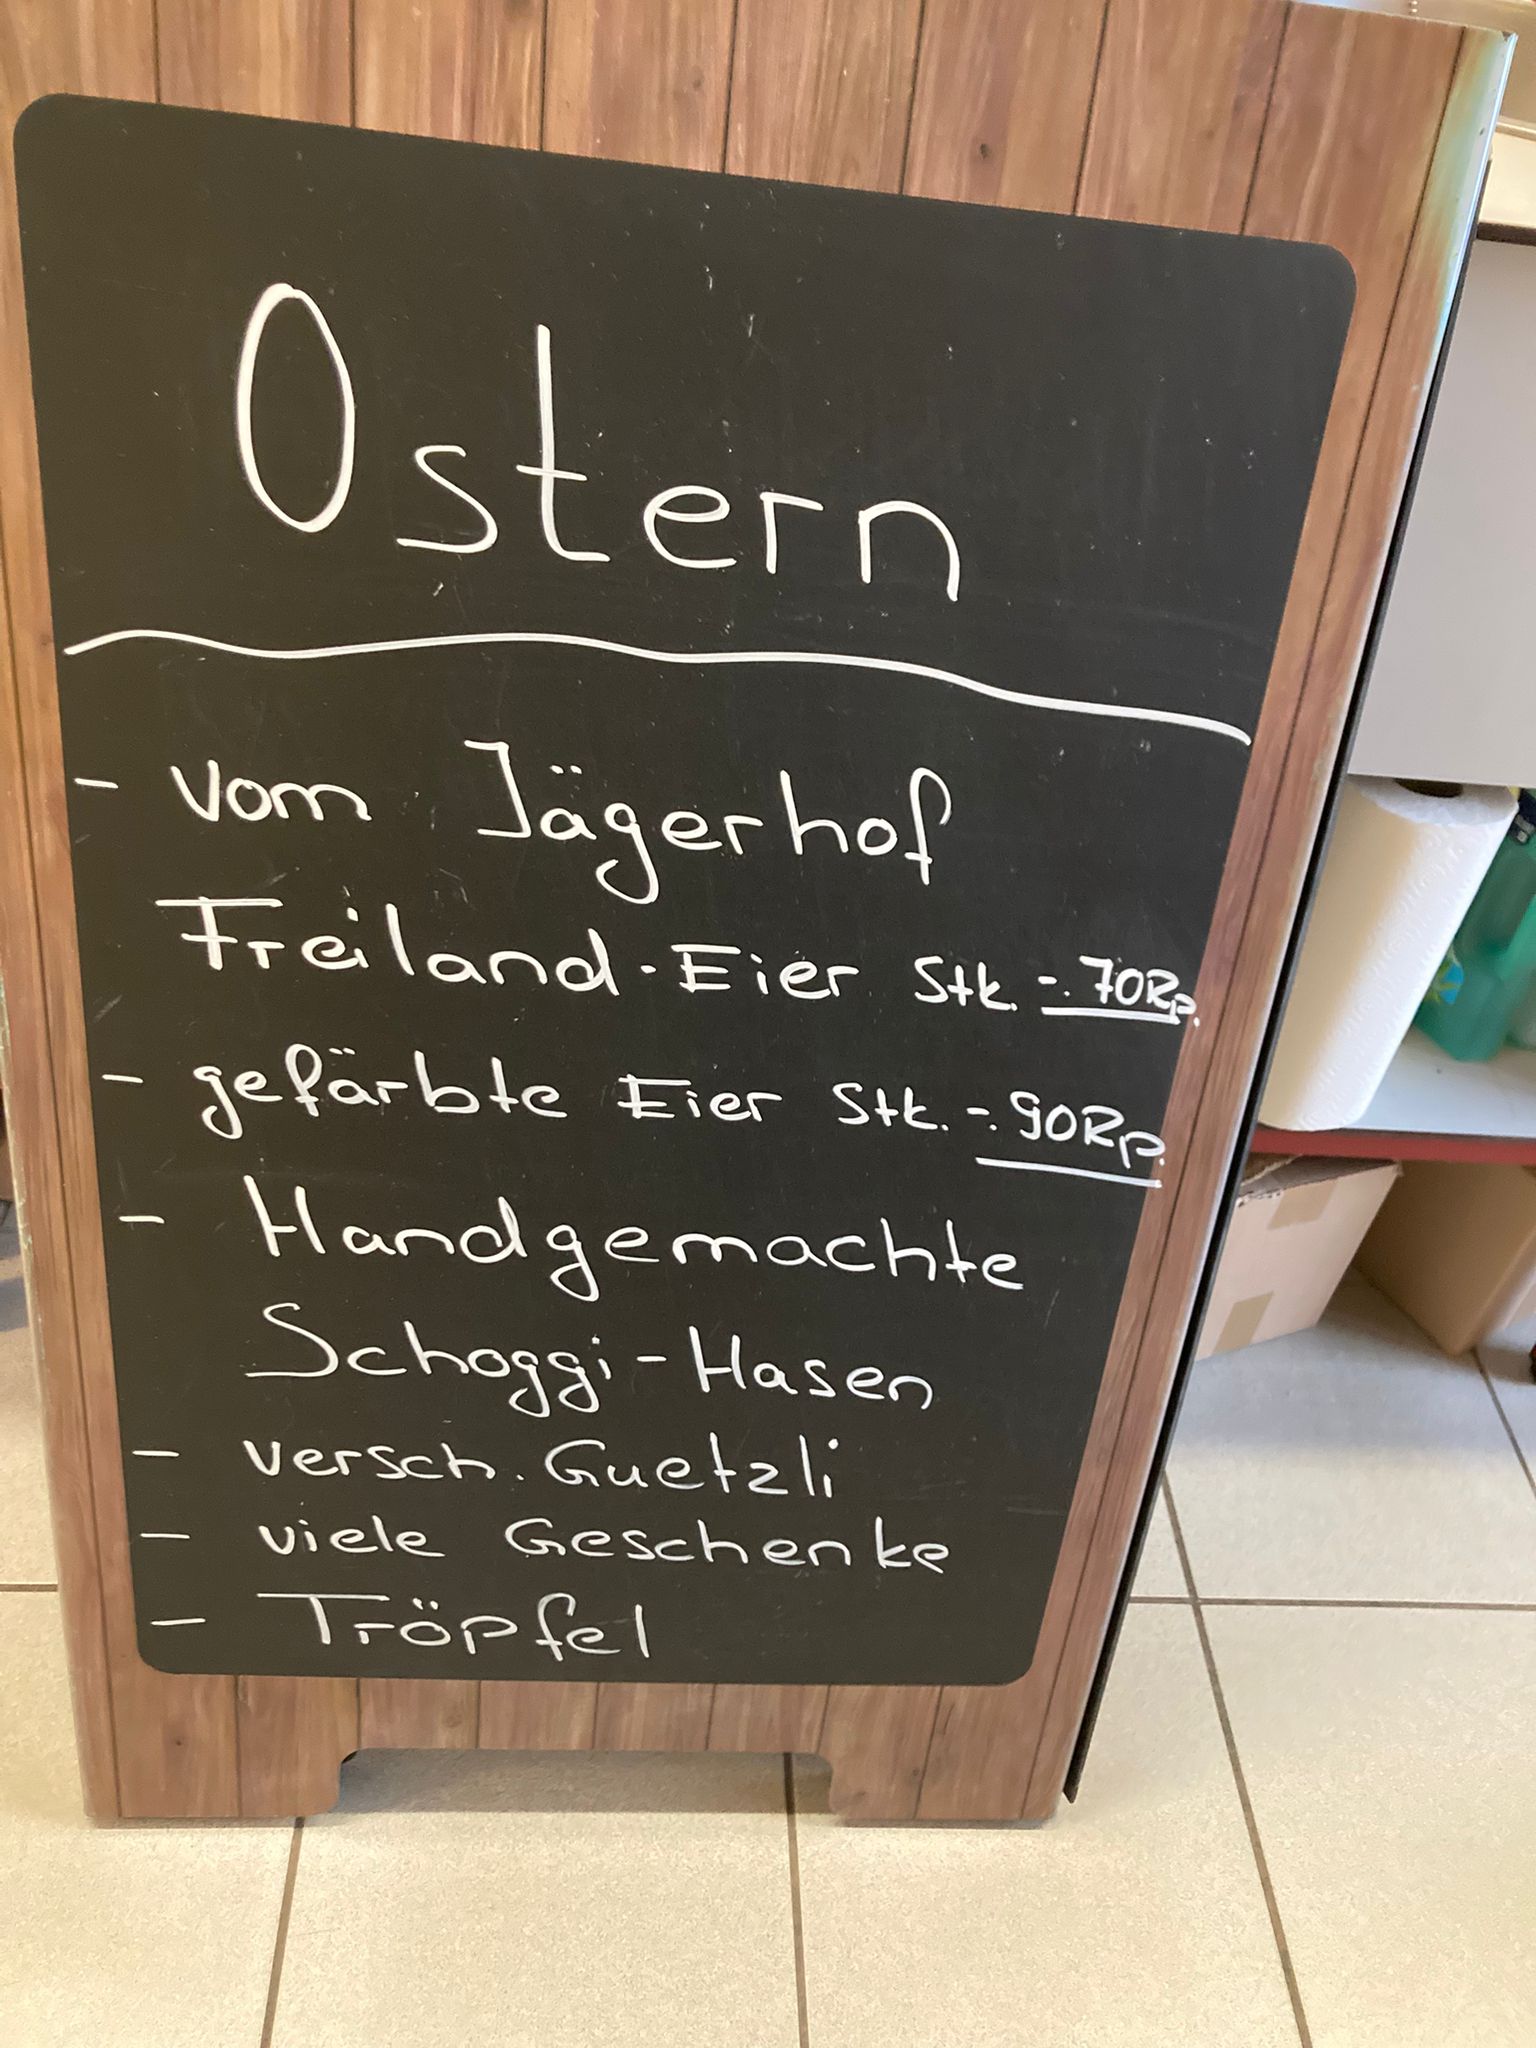 Ostern
- vom Jägerhof
Freiland-Eier Stk. -.70Rp.
- gefärbte Eier Stk. -.90Rp.
- Handgemachte
Schoggi-Hasen
- versch. Guetzli
- viele Geschenke
- Tröpfel